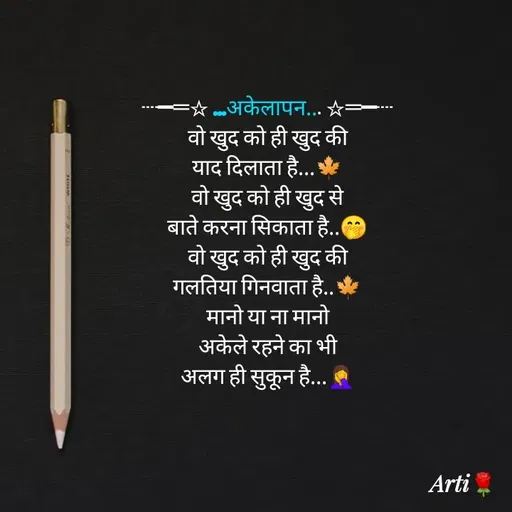 ┈━═☆ ...अकेलापन... ☆═━┈
वो खुद को ही खुद की
याद दिलाता है...🍁
वो खुद को ही खुद से
बाते करना सिकाता है..🤭
वो खुद को ही खुद की
गलतिया गिनवाता है..🍁
मानो या ना मानो
अकेले रहने का भी
अलग ही सुकून है...🤦‍♀️
Arti🌹